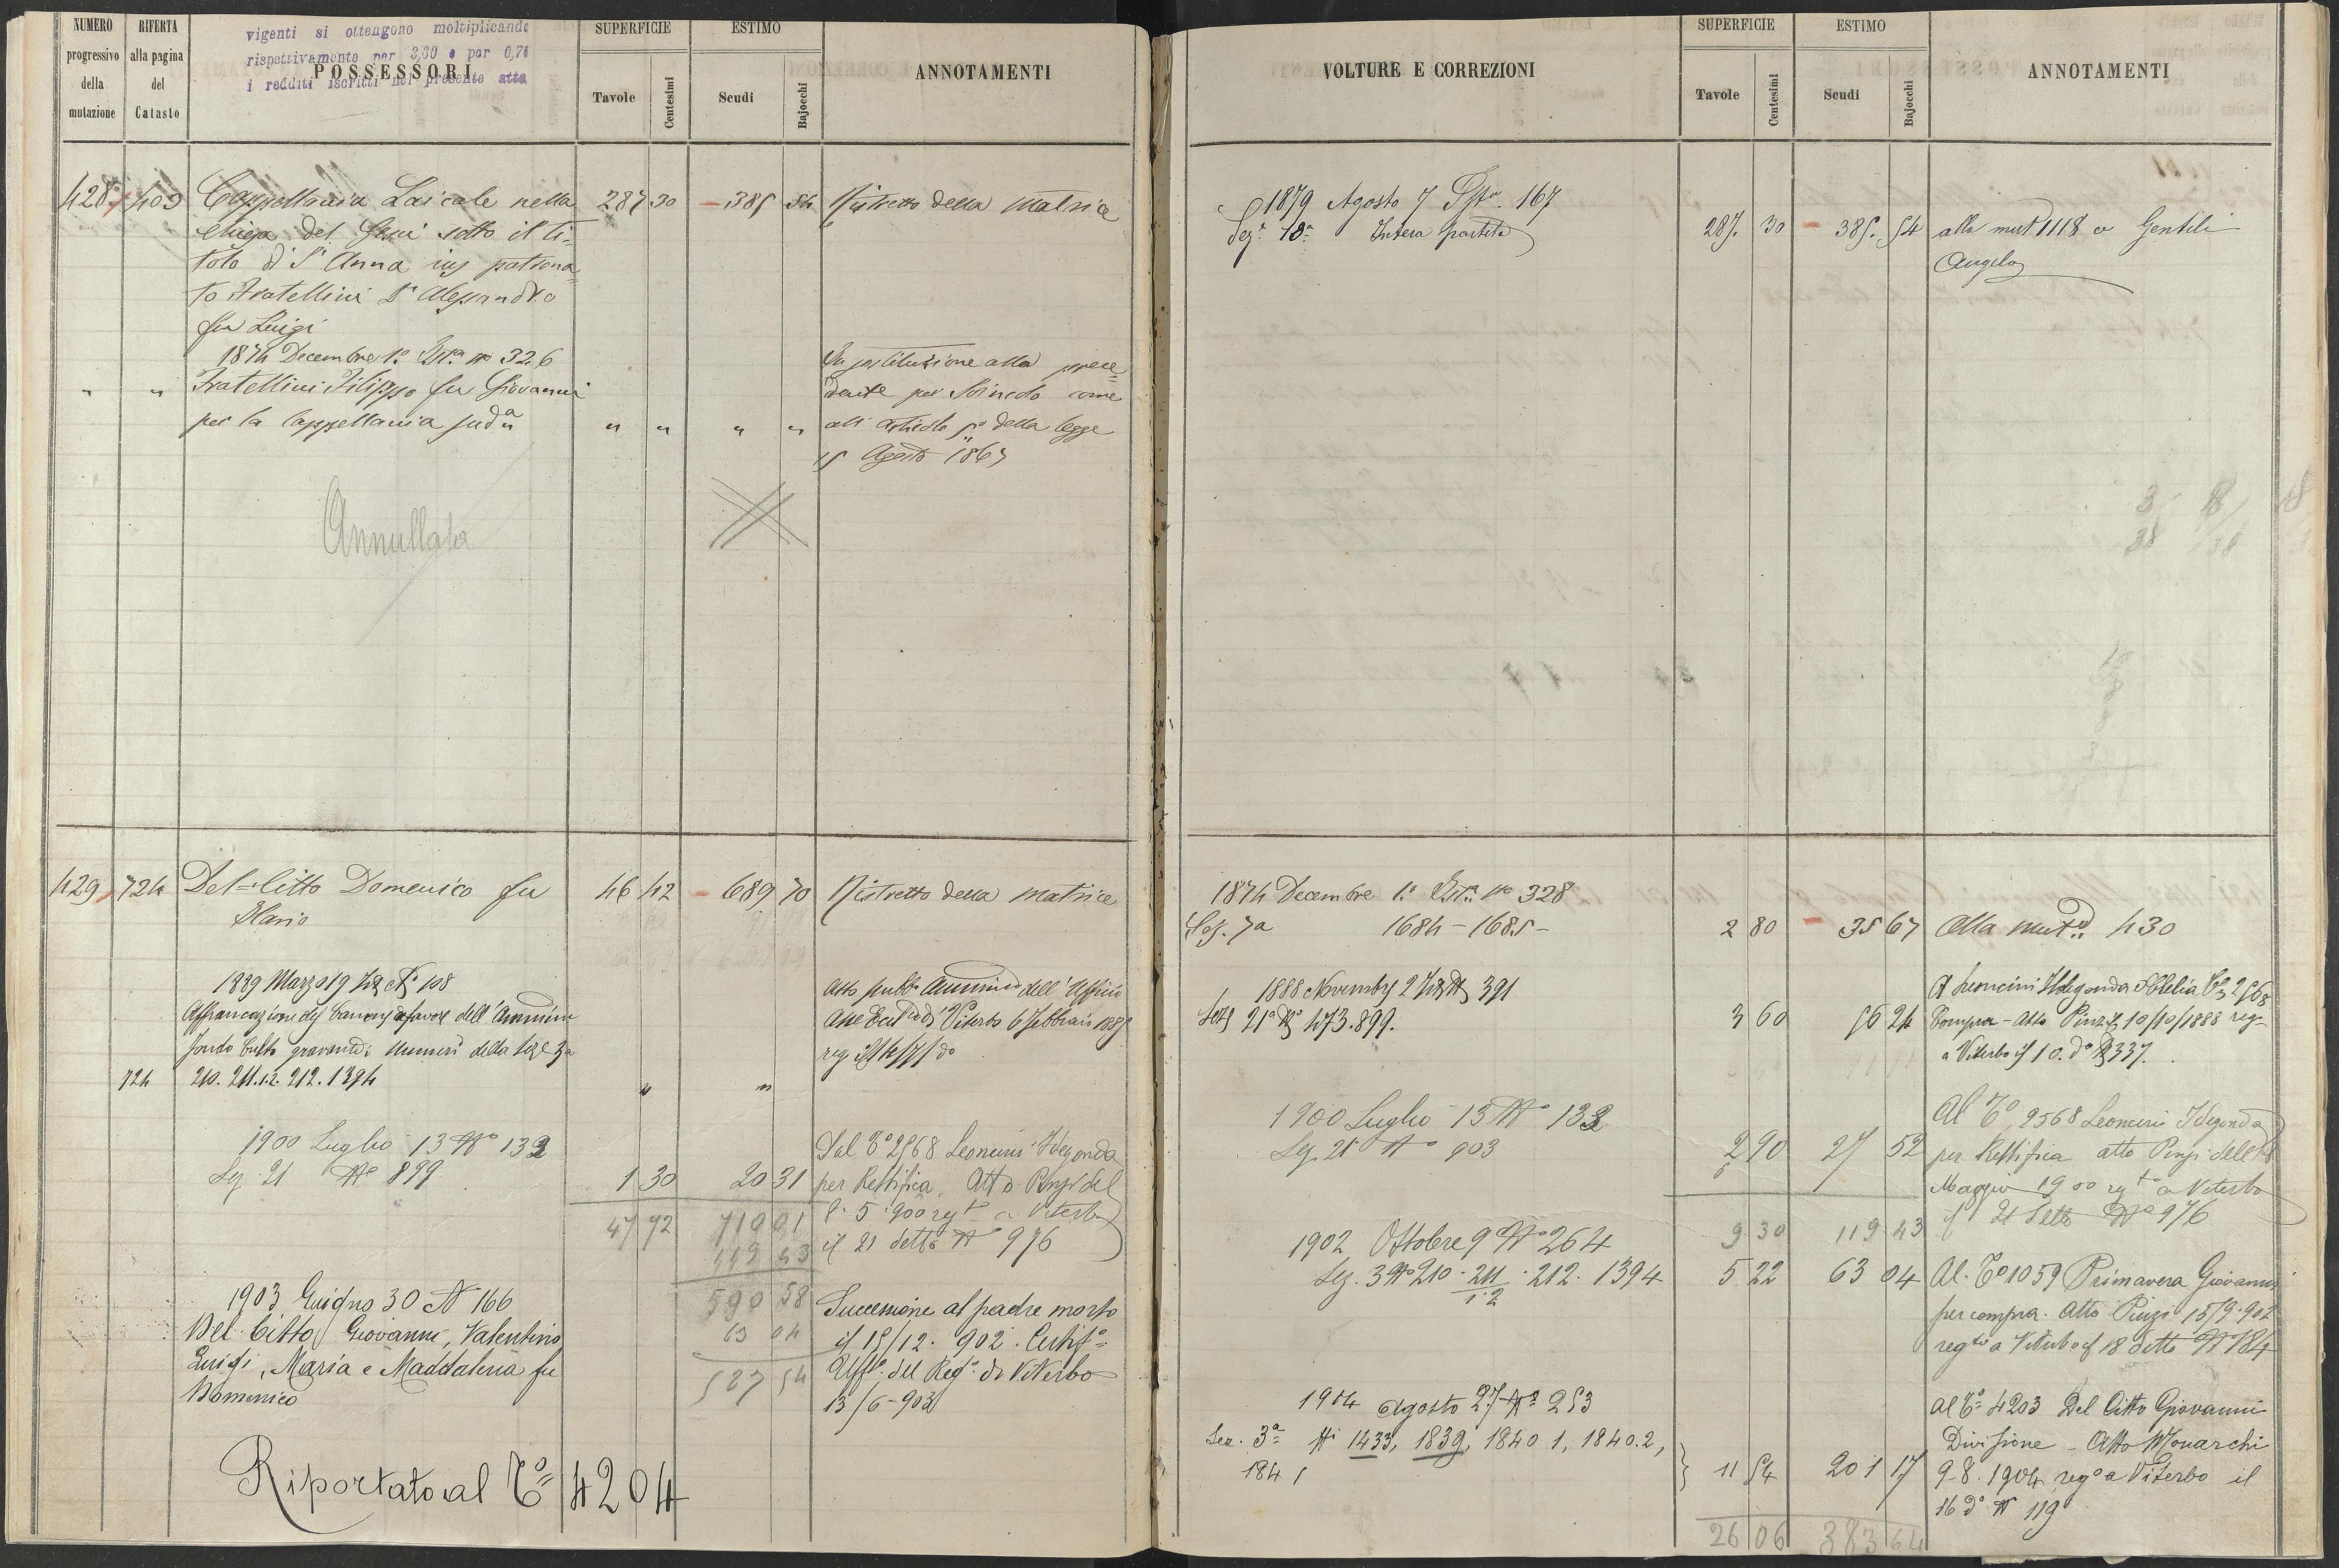 NUMERO progressivo della mutazione
RIFERTA alla pagina del Catasto
vigenti si ottengono moltiplicando
rispettivamente per 3,30 e per 0,71
i redditi iscritti nel presente atto
POSSESSORI
SUPERFICIE
Tavole Centesimi
ESTIMO
Scudi Bajocchi
ANNOTAMENTI
428 403 Cappellania Laicale nella 287 30 385 54 Ristretto della Matrice
chiesa del Gesù sotto il ti=
tolo di S. Anna jus patrona=
to Fratellini Dr Alessandro
fu Luigi
1874 Decembre 1° Ista no 326
" " Fratellini Filippo fu Giovanni
per la Cappellania suda " " " "
In sostituzione alla prece=
dente per Svincolo come
all articolo 5° della legge
15 Agosto 1867
Annullata
429 724 Del=Citto Domenico fu 46 42 689 70 Ristretto della Matrice
Ilario
1889 Marzo 19 No 108
Affrancazione dei Canoni a favore dell'Ammine
fondo Culto gravanti i numeri della Sez e 3a
724 210. 211.1.2. 212. 1394 " "
Atto pubb. Amminvo dell'Ufficio
Asse Eccl di Viterbo 6 Febbraio 1889
1900 Luglio 13 No 132
Sez. 21 No 899 1 30 20 31
47 72 710 01
119 43
590 58
63 04
527 54
Dal To 2568 Leoncini Ildegonda
per Rettifica. Atto Pinzi del
8. 5. 900 regto a Viterbo
il 21 detto No 976
1903 Giugno 30 N 166
Del Citto Giovanni, Valentino
Luigi, Maria e Maddalena fu
Domenico
Successione al padre morto
il 15/12. 902. Certifo
Uffo del Rego di Viterbo
13/6-903
Riportato al To 4204
VOLTURE E CORREZIONI
SUPERFICIE
Tavole Centesimi
ESTIMO
Scudi Bajocchi
ANNOTAMENTI
1879 Agosto 7 Ista. 167
Sez.e 18a Intera partita 287. 30 385. 54 alla mut 1118 a Gentili
Angelo
1874 Decembre 1° Ista no 328
Sez. 7a 1684 - 1685 - 2 80 35 67 Alla mutd 430
1888 Novembre 2 No 391
Seze 21a No 473. 899. 3 60 56 24
A Leoncini Ildegonda Clelia To 2568
Compra - Atto Pinzi 10/10/1888 reg
a Viterbo il 10. do No 337.
1900 Luglio 13 No 132
Sez. 21 No 903 2 90 27 52
Al To 2568 Leoncini Ildegonda
per Rettifica atto Pinzi dell'8
Maggio 1900 regto a Viterbo
il 21 detto No 976
9 30 119 43
1902 Ottobre 9 No 264
Sez. 3 No 210. 211/1.2. 212. 1394 5 22 63 04
Al. To 1059 Primavera Giovanni
per compra. Atto Pinzi 15/9. 902
regto a Viterbo il 18 detto No 184
1904 Agosto 27 No 253
Sez. 3a Ni 1433, 1839, 1840 1, 1840.2,
1841 11 54 201 17
al To 4203 Del Citto Giovanni
Divisione - Atto Monarchi
9-8. 1904 rego a Viterbo il
16 do No 119
26 06 383 64